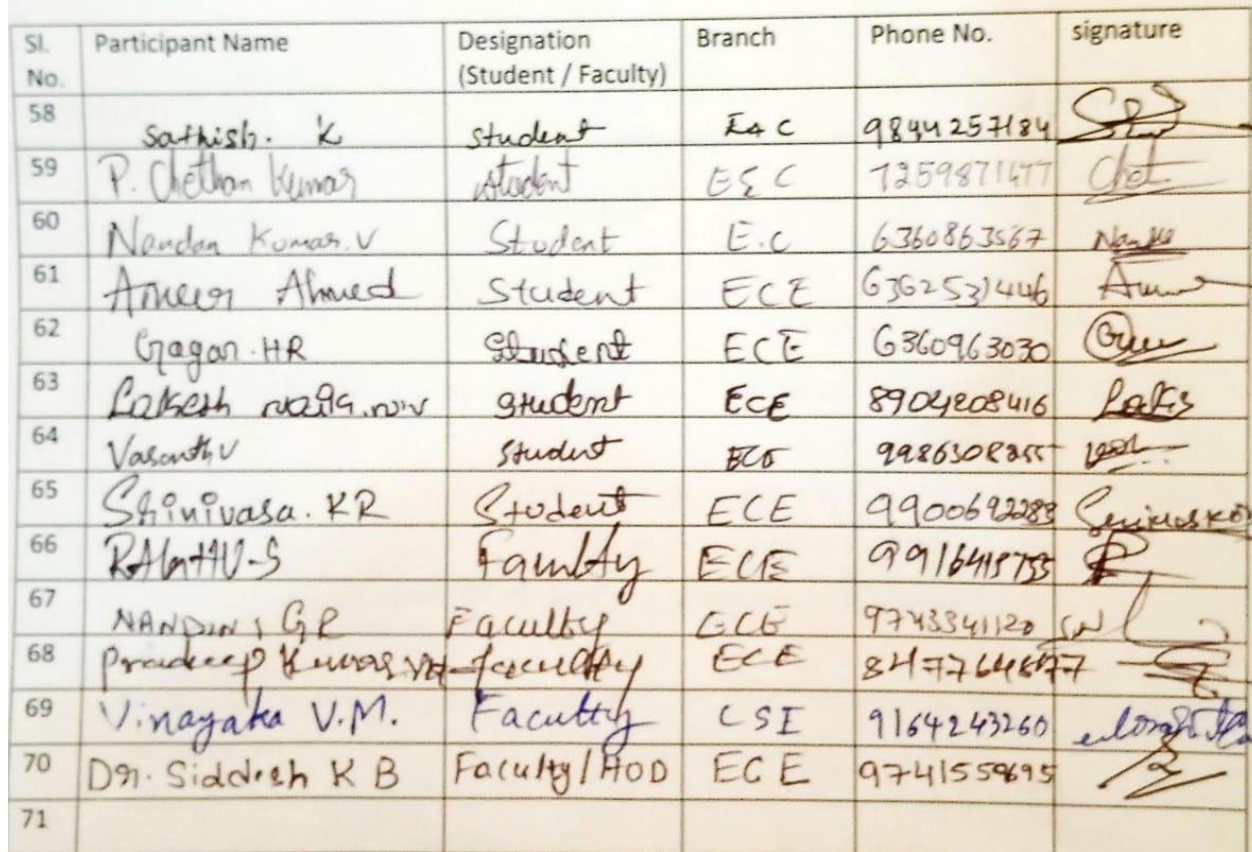 Sl. No. Participant Name Designation (Student / Faculty) Branch Phone No. signature
58 Sathish. K Student E&C 9844257184
59 P. Chethan Kumar student E&C 7259871477 Chet
60 Nandan Kumar. V Student E.C 6360863567
61 Ameer Ahmed Student ECE 6362531446
62 Gagan. HR Student ECE 6360963030
63 student ECE 8904208416
64 Vasanth V Student ECE
65 Shinivasa. KR Student ECE 9900692283
66 Faculty ECE
67 NANDINI GR Faculty ECE 9743341120
68 Pradeep Kumar faculty ECE
69 Vinayaka V.M. Faculty CSE 9164243260
70 Dr. Siddesh K B Faculty / HOD ECE 9741559695
71